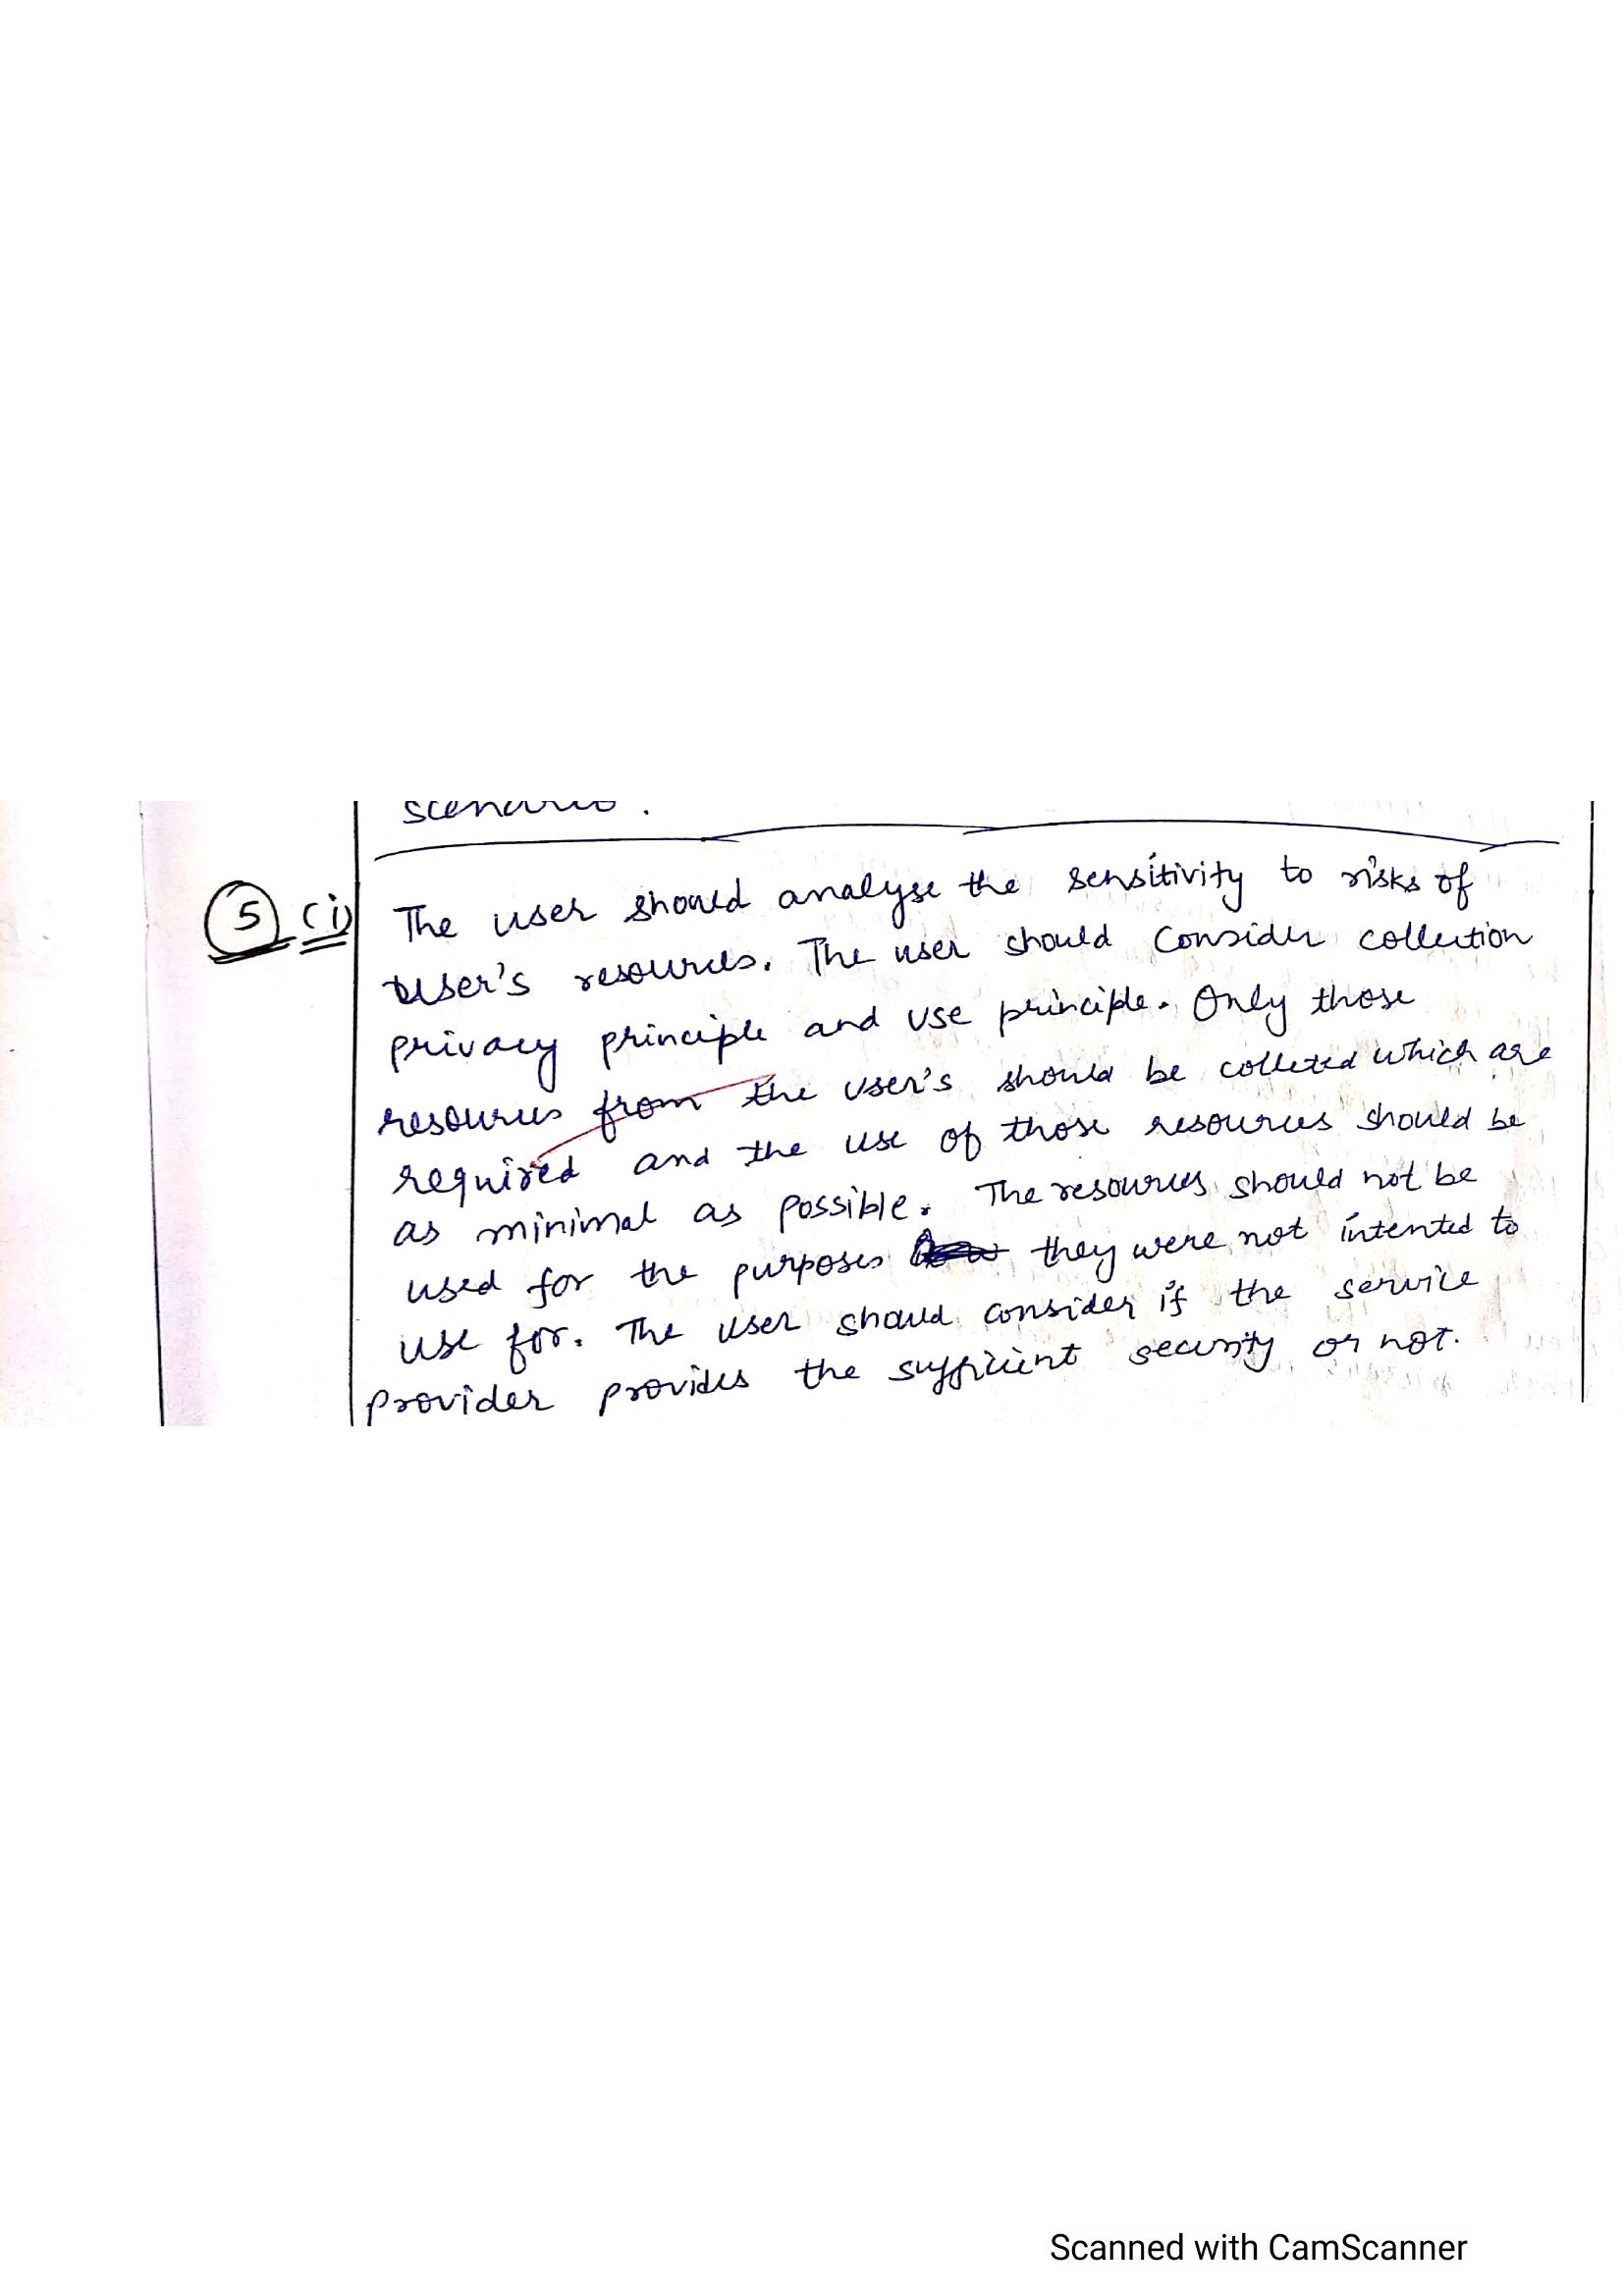 scenario.
5 (i) The user should analyse the sensitivity to risks of
User's resources. The user should consider collection
privacy principle and use principle. Only those
resources from the user's should be colleted which are
required and the use of those resources should be
as minimal as possible. The resources should not be
used for the purposes they were not intented to
use for. The user should consider if the service
provider provides the sufficient security or not.
Scanned with CamScanner